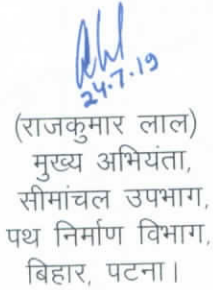 24.7.19
(राजकुमार लाल)
मुख्य अभियंता,
सीमांचल उपभाग,
पथ निर्माण विभाग,
बिहार, पटना।